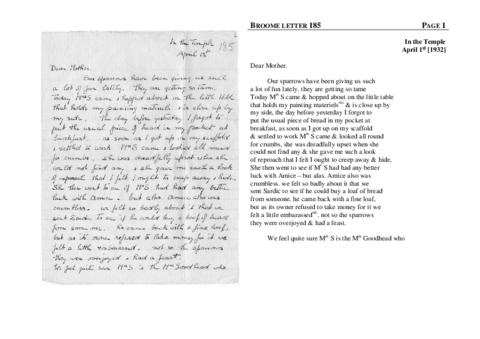 In the Temple 185
April 1st
Dear Mother.
Our sparrows have been giving us such
a lot of fun lately. They are getting so tame.
Today Mrs S came & hopped about on the little table
that holds my painting materiels & is close up by
my side. The day before yesterday I forgot to
put the usual piece of bread in my pocket at
breakfast. as soon as I got up on my scaffold
& settled to work Mrs S came & looked all round
for crumbs. she was dreadfully upset when she
could not find any & she gave me such a look
of reproach that I felt I ought to creep away & hide.
She then went to see if Mr S had had any better
luck with Amice. but alas Amice also was
crumbless. we felt so badly about it that we
sent Sardic to see if he could buy a loaf of bread
from someone. he came back with a fine loaf,
but as its owner refused to take money for it we
felt a little embarassed. not so the sparrows
they were overjoyed & had a feast.
We feel quite sure Mrs S is the Mrs Goodhead who
BROOME LETTER 185 PAGE 1
In the Temple
April 1st [1932]
Dear Mother.
Our sparrows have been giving us such
a lot of fun lately. they are getting so tame
Today Mrs S came & hopped about on the little table
that holds my painting materiels(sic) & is close up by
my side, the day before yesterday I forgot to
put the usual piece of bread in my pocket at
breakfast, as soon as I got up on my scaffold
& settled to work Mrs S came & looked all round
for crumbs, she was dreadfully upset when she
could not find any & she gave me such a look
of reproach that I felt I ought to creep away & hide,
She then went to see if Mr S had had any better
luck with Amice – but alas, Amice also was
crumbless. we felt so badly about it that we
sent Sardic to see if he could buy a loaf of bread
from someone. he came back with a fine loaf,
but as its owner refused to take money for it we
felt a little embarassed(sic). not so the sparrows
they were overjoyed & had a feast.
We feel quite sure Mrs S is the Mrs Goodhead who